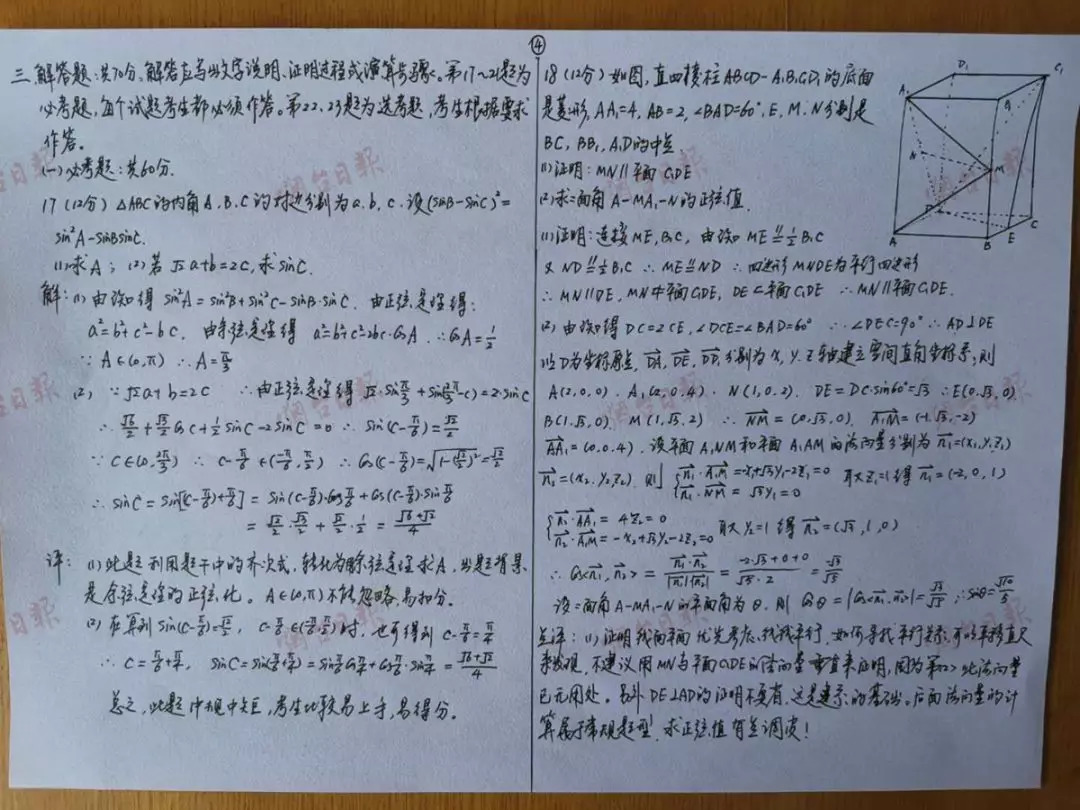 ④
三.解答题:共70分,解答应写出文字说明、证明过程或演算步骤。第17~21题为
必考题,每个试题考生都必须作答。第22、23题为选考题,考生根据要求
作答。
(一)必考题:共60分.
17 (12分) △ABC的内角A、B、C的对边分别为a、b、c,设(sinB-sinC)²=
sin²A-sinBsinC.
(1)求A; (2)若√2a+b=2C,求sinC.
解:(1)由设知得 sin²A=sin²B+sin²C-sinB·sinC. 由正弦定理得:
a²=b²+c²-bc. 由余弦定理得 a²=b²+c²-2bc·cosA ∴cosA=1/2
∵A∈(0,π) ∴A=π/3
(2) ∵√2a+b=2C ∴由正弦定理得√2·sinπ/3+sin(2π/3-C)=2·sinC
∴ √6/2+√3/2cosC+1/2sinC-2sinC=0 ∴sin(C-π/6)=√2/2
∵C∈(0,2π/3) ∴C-π/6∈(-π/6,π/2) ∴cos(C-π/6)=√(1-(√2/2)²)=√2/2
∴sinC=sin[(C-π/6)+π/6]=sin(C-π/6)·cosπ/6+cos(C-π/6)·sinπ/6
=√2/2·√3/2+√2/2·1/2=(√6+√2)/4
评:(1)此题利用题干中的齐次式,转化为余弦定理求A,出题背景
是余弦定理的正弦化。A∈(0,π)不能忽略,易扣分。
(2)在算到sin(C-π/6)=√2/2, C-π/6∈(-π/6,π/2)时,也可得到C-π/6=π/4
∴C=π/6+π/4, sinC=sin(π/6+π/4)=sinπ/6cosπ/4+cosπ/6·sinπ/4=(√6+√2)/4
总之,此题中规中矩,考生比较易上手,易得分。
18 (12分) 如图,直四棱柱ABCD-A₁B₁C₁D₁的底面
是菱形,AA₁=4,AB=2,∠BAD=60°,E、M、N分别是
BC,BB₁,A₁D的中点.
(1)证明:MN∥平面C₁DE
(2)求二面角A-MA₁-N的正弦值.
(1)证明:连接ME,B₁C, 由设知ME∥=1/2B₁C
又ND∥=1/2B₁C ∴ME∥=ND ∴四边形MNDE为平行四边形
∴MN∥DE, MN⊄平面C₁DE, DE⊂平面C₁DE ∴MN∥平面C₁DE.
(2)由设知得DC=2CE,∠DCE=∠BAD=60° ∴∠DEC=90° ∴AD⊥DE
以D为坐标原点,DA,DE,DD₁分别为x,y,z轴建立空间直角坐标系,则
A(2,0,0). A₁(2,0,4). N(1,0,2). DE=DC·sin60°=√3 ∴E(0,√3,0).
B(1,√3,0). M(1,√3,2) ∴NM=(0,√3,0). A₁M=(-1,√3,-2)
AA₁=(0,0,4). 设平面A₁NM和平面A₁AM的法向量分别为n₁=(x₁,y₁,z₁)
n₂=(x₂,y₂,z₂). 则{n₁·A₁M=-x₁+√3y₁-2z₁=0 取z₁=1得n₁=(-2,0,1)
n₁·NM=√3y₁=0
{n₂·AA₁=4z₂=0
n₂·A₁M=-x₂+√3y₂-2z₂=0 取y₂=1得n₂=(√3,1,0)
∴cos<n₁,n₂>=n₁·n₂/|n₁||n₂|=(-2√3+0+0)/(√5·2)=-√3/√5
设二面角A-MA₁-N的平面角为θ.则cosθ=|cos<n₁,n₂>|=√3/√5 ∴sinθ=√10/5
点评:(1)证明线面平行优先考虑线线平行,如何寻找平行关系,可以平移直尺
来发现,不建议用MN与平面C₁DE的法向量垂直来证明,因为第(2)此法向量
已无用处。另外DE⊥AD的证明不要省,这是建系的基础。后面法向量的计
算属于常规题型,求正弦值有些调皮!
A₁
D₁
C₁
B₁
N
M
D
A
B
E
C